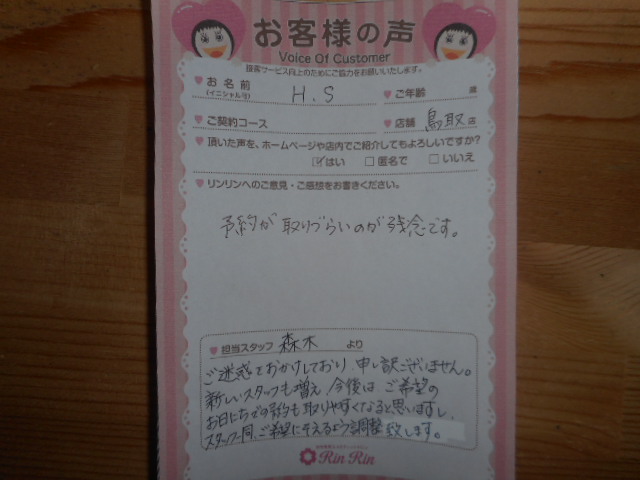 お客様の声
Voice Of Customer
接客サービス向上のためにご協力をお願いいたします。
お名前 H.S ご年齢 歳
(イニシャル可)
ご契約コース 店舗 鳥取店
頂いた声を、ホームページや店内でご紹介してもよろしいですか?
はい 匿名で いいえ
リンリンへのご意見・ご感想をお書きください。
予約が取りづらいのが残念です。
担当スタッフ 森木 より
ご迷惑をおかけしており、申し訳ございません。
新しいスタッフも増え、今後はご希望の
お日にちでの予約も取りやすくなると思いますし、
スタッフ一同、ご希望にそえるよう調整致します。
Rin Rin